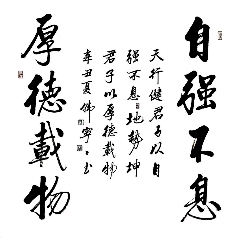 自强不息
天行健君子以自
强不息地勢坤
君子以厚德載物
辛丑夏佛寧書
厚德載物